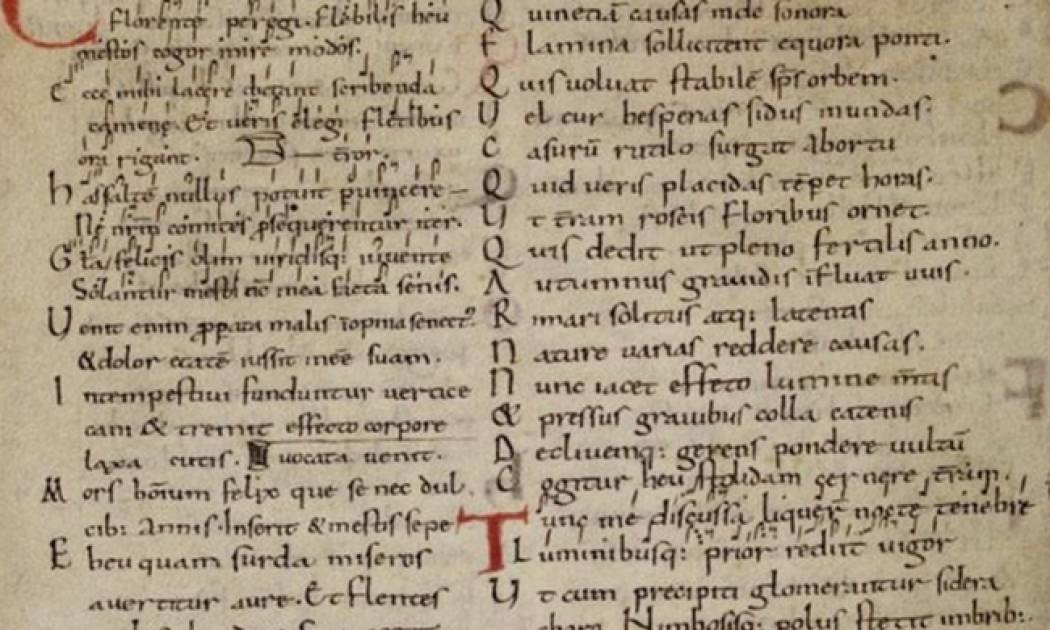 florente peregi. Flebilis heu
mestos cogor inire modos.
Ecce mihi lacere dictant scribenda
camene. Et ueris elegi fletibus
ora rigant. error.
Has saltē nullus potuit puincere
Ne nrm̄ comites psequerentur iter.
Gła felicis olim uiridisq: iuuente
Solantur mesti nc̄ mea facta senis.
Uenit enim ppata malis inopina senect;
& dolor etatē iussit inēe suam.
Intempestiui funduntur uertice
cani & tremit effeto corpore
laxa cutis. uocata uenit.
Mors hoium felix que se nec dul
cib: Annis. Inserit & mestis sepe
Eheu quam surda miseros
auertitur aure. Et flentes
Quinetiā causas unde sonora
Flamina sollicitent equora ponti.
Quis uoluat stabilē sps̄ orbem.
Uel cur hesperias sidus in undas.
Casurū rutilo surgat Abortu
Quid ueris placidas tēpet horas.
Ut t̄ram roseis floribus ornet.
Quis dedit ut pleno fertilis anno.
Autumnus grauidis īfluat uuis.
Rimari solitus atq: latentis
Nature uarias reddere causas.
Nunc iacet effeto lumine m̄tis
& pressus grauibus colla catenis
Decliuemq: gerens pondere uultū
Cogitur heu stolidam cernere t̄ram.
Tunc me discussa liquer nocte tenebre
Luminibusq: prior rediit uigor
Ut cum precipiti glomerantur sidera
choro Nimbosisq: polus stetit imbrib: